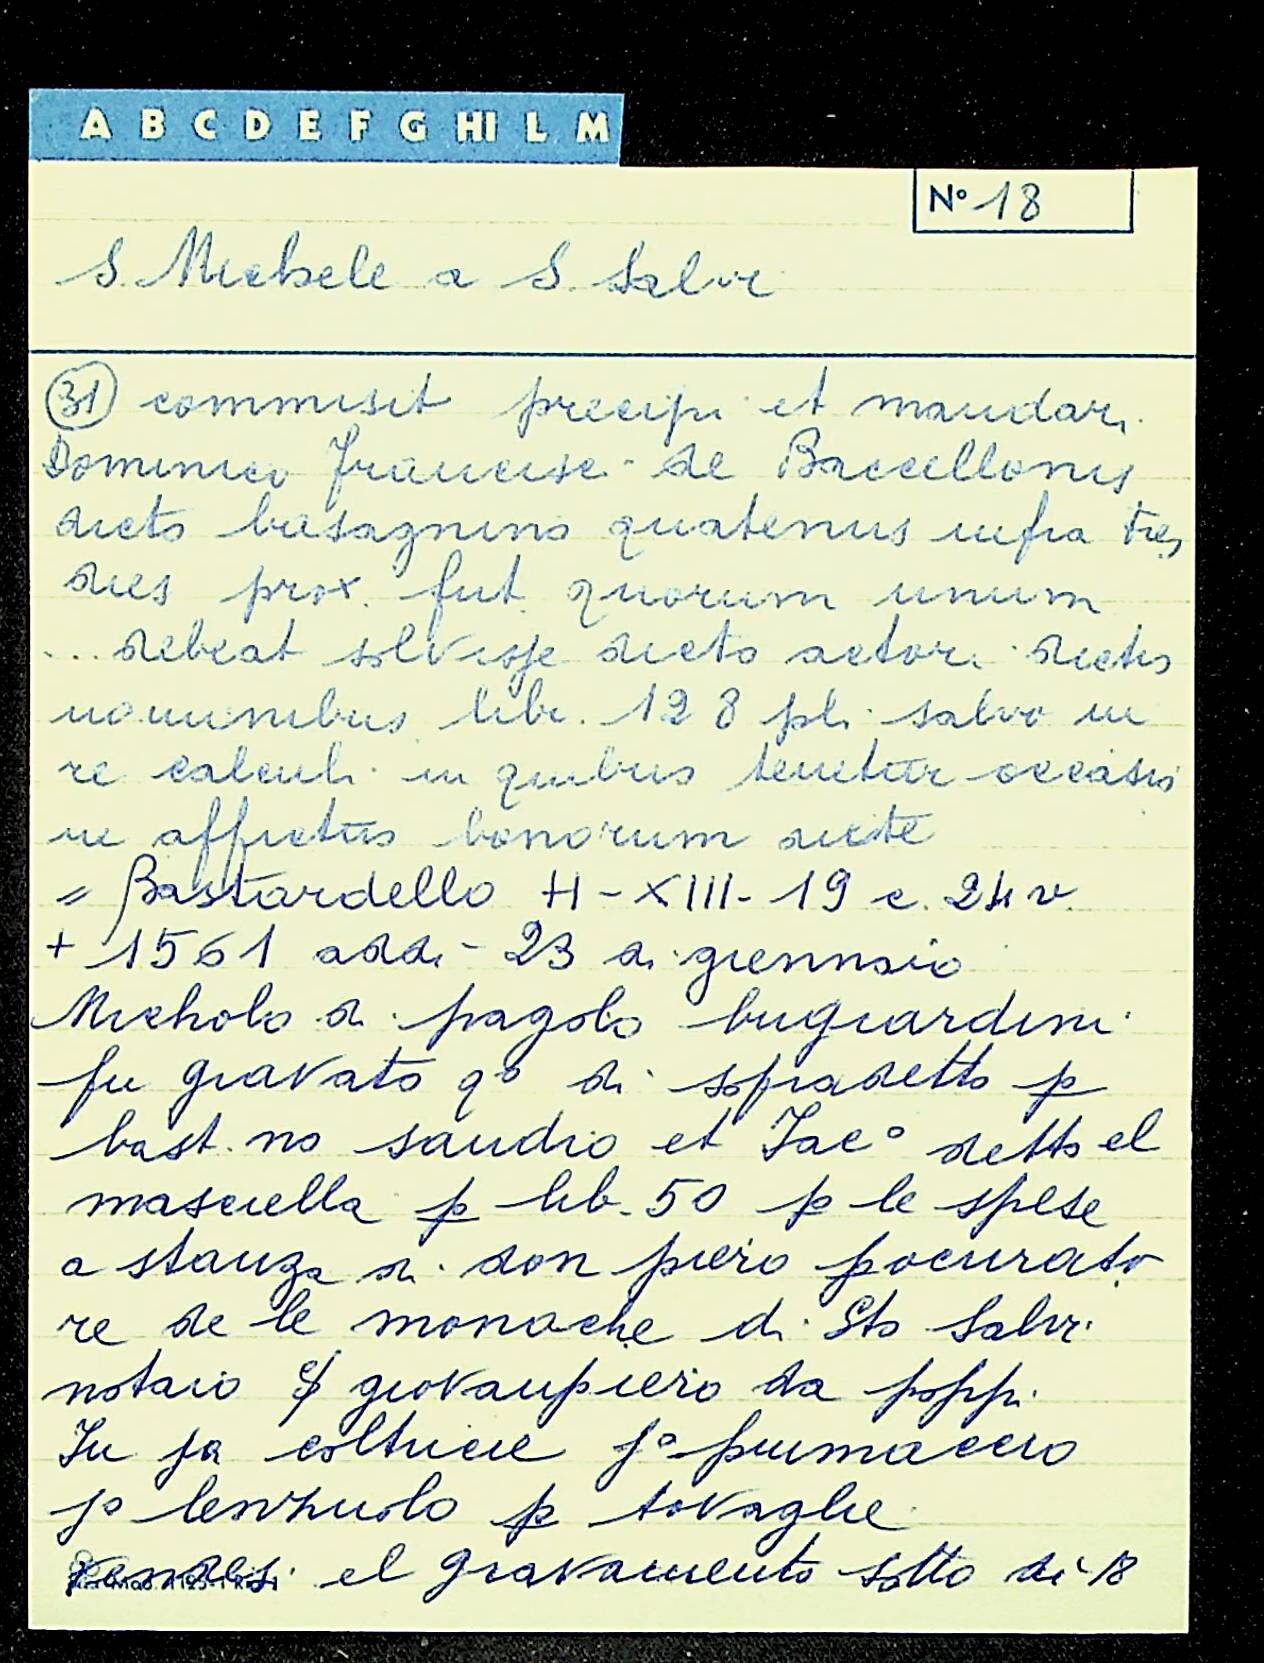 A B C D E F G HI L M
N° 18
S. Michele a S. Salvi
31 commisit precipi et mandari
Dominico Francisc. de Baccellonis
dicto busagnino quatenus infra tres
dies prox. fut. quorum unum
... debeat solvisse dicto actori dictis
nominibus libr. 128 pli. salvo in
re calculi in quibus tenetur occasio
ne affictus bonorum dicte
= Bastardello H-XIII-19 c. 24 v
+ 1561 addi - 23 di giennaio
Micholo di pagolo bugiardini
fu gravato q° di sopradetto p
bast. no sandro et Iac° detto el
masciella p lib. 50 p le spese
a stanza di don piero pocurato
re de le monache di Sto Salvi
notaio giovanpiero da poppi
In ja coltricie j° primaccio
j° lenzhuolo p tovaglie
rendesi el gravamento sotto di 18